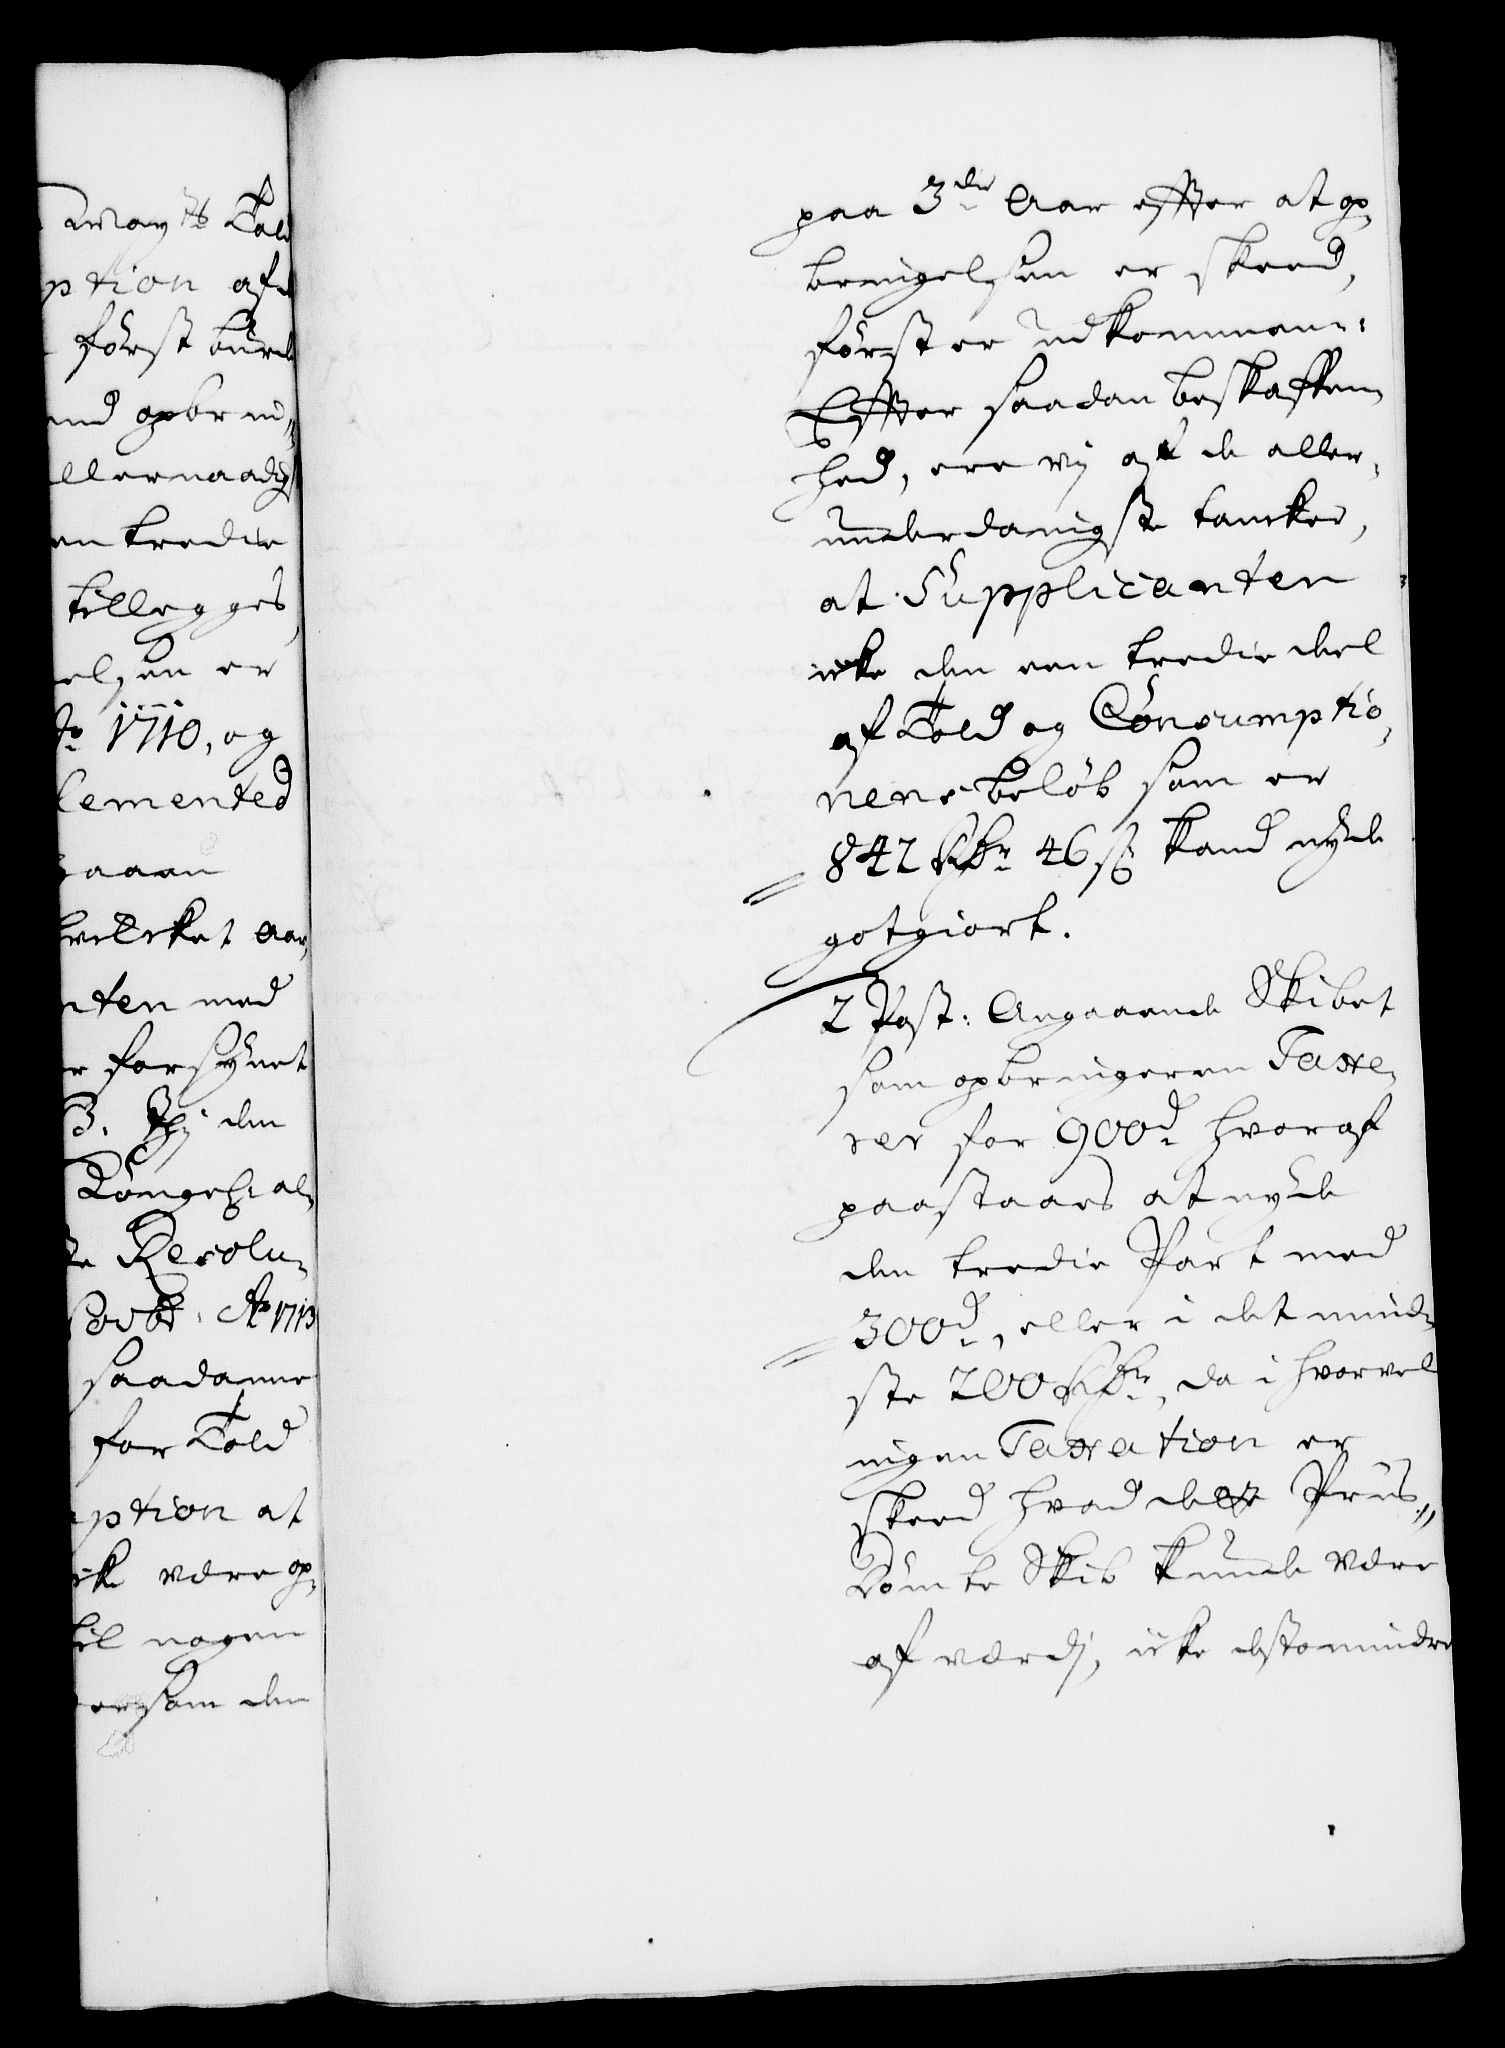 May Told
ption af
först burde
ind opbrin„
llernaadigst
en tredie
tillegges,
elsen er
Ao 1710, og
lemented
aaen
hvilcket Aar
nten med
r forsÿnet
3. den
Kongel: al„
te Resolu„
Ao 1713
saadanne
for Told
ption at
ick være op„
til nogen
ersom den
paa 3die Aar effter at op„
bringelsen er skeed,
förster udkommen:
Effter saadan beskaffen„
hed, ere vij af de aller„
underdanigste tancker,
at Supplicanten
icke den een tredie deel
af Told og Consumptio„
nens beløb som er
842 Rdr 46 ß kand nÿde
gotgiort.
2 Post: Angaaende Skibet
som opbringeren Taxe„
rer for 900d hvoraf
paastaaes at nÿde
den tredie Part med
300d, eller i det mind„
ste 200 Rdr, da i hvorvel
ingen Taxation er
skeed hvad dette Priis„
Dömte Skib kunde være
af værdj, icke destomindre